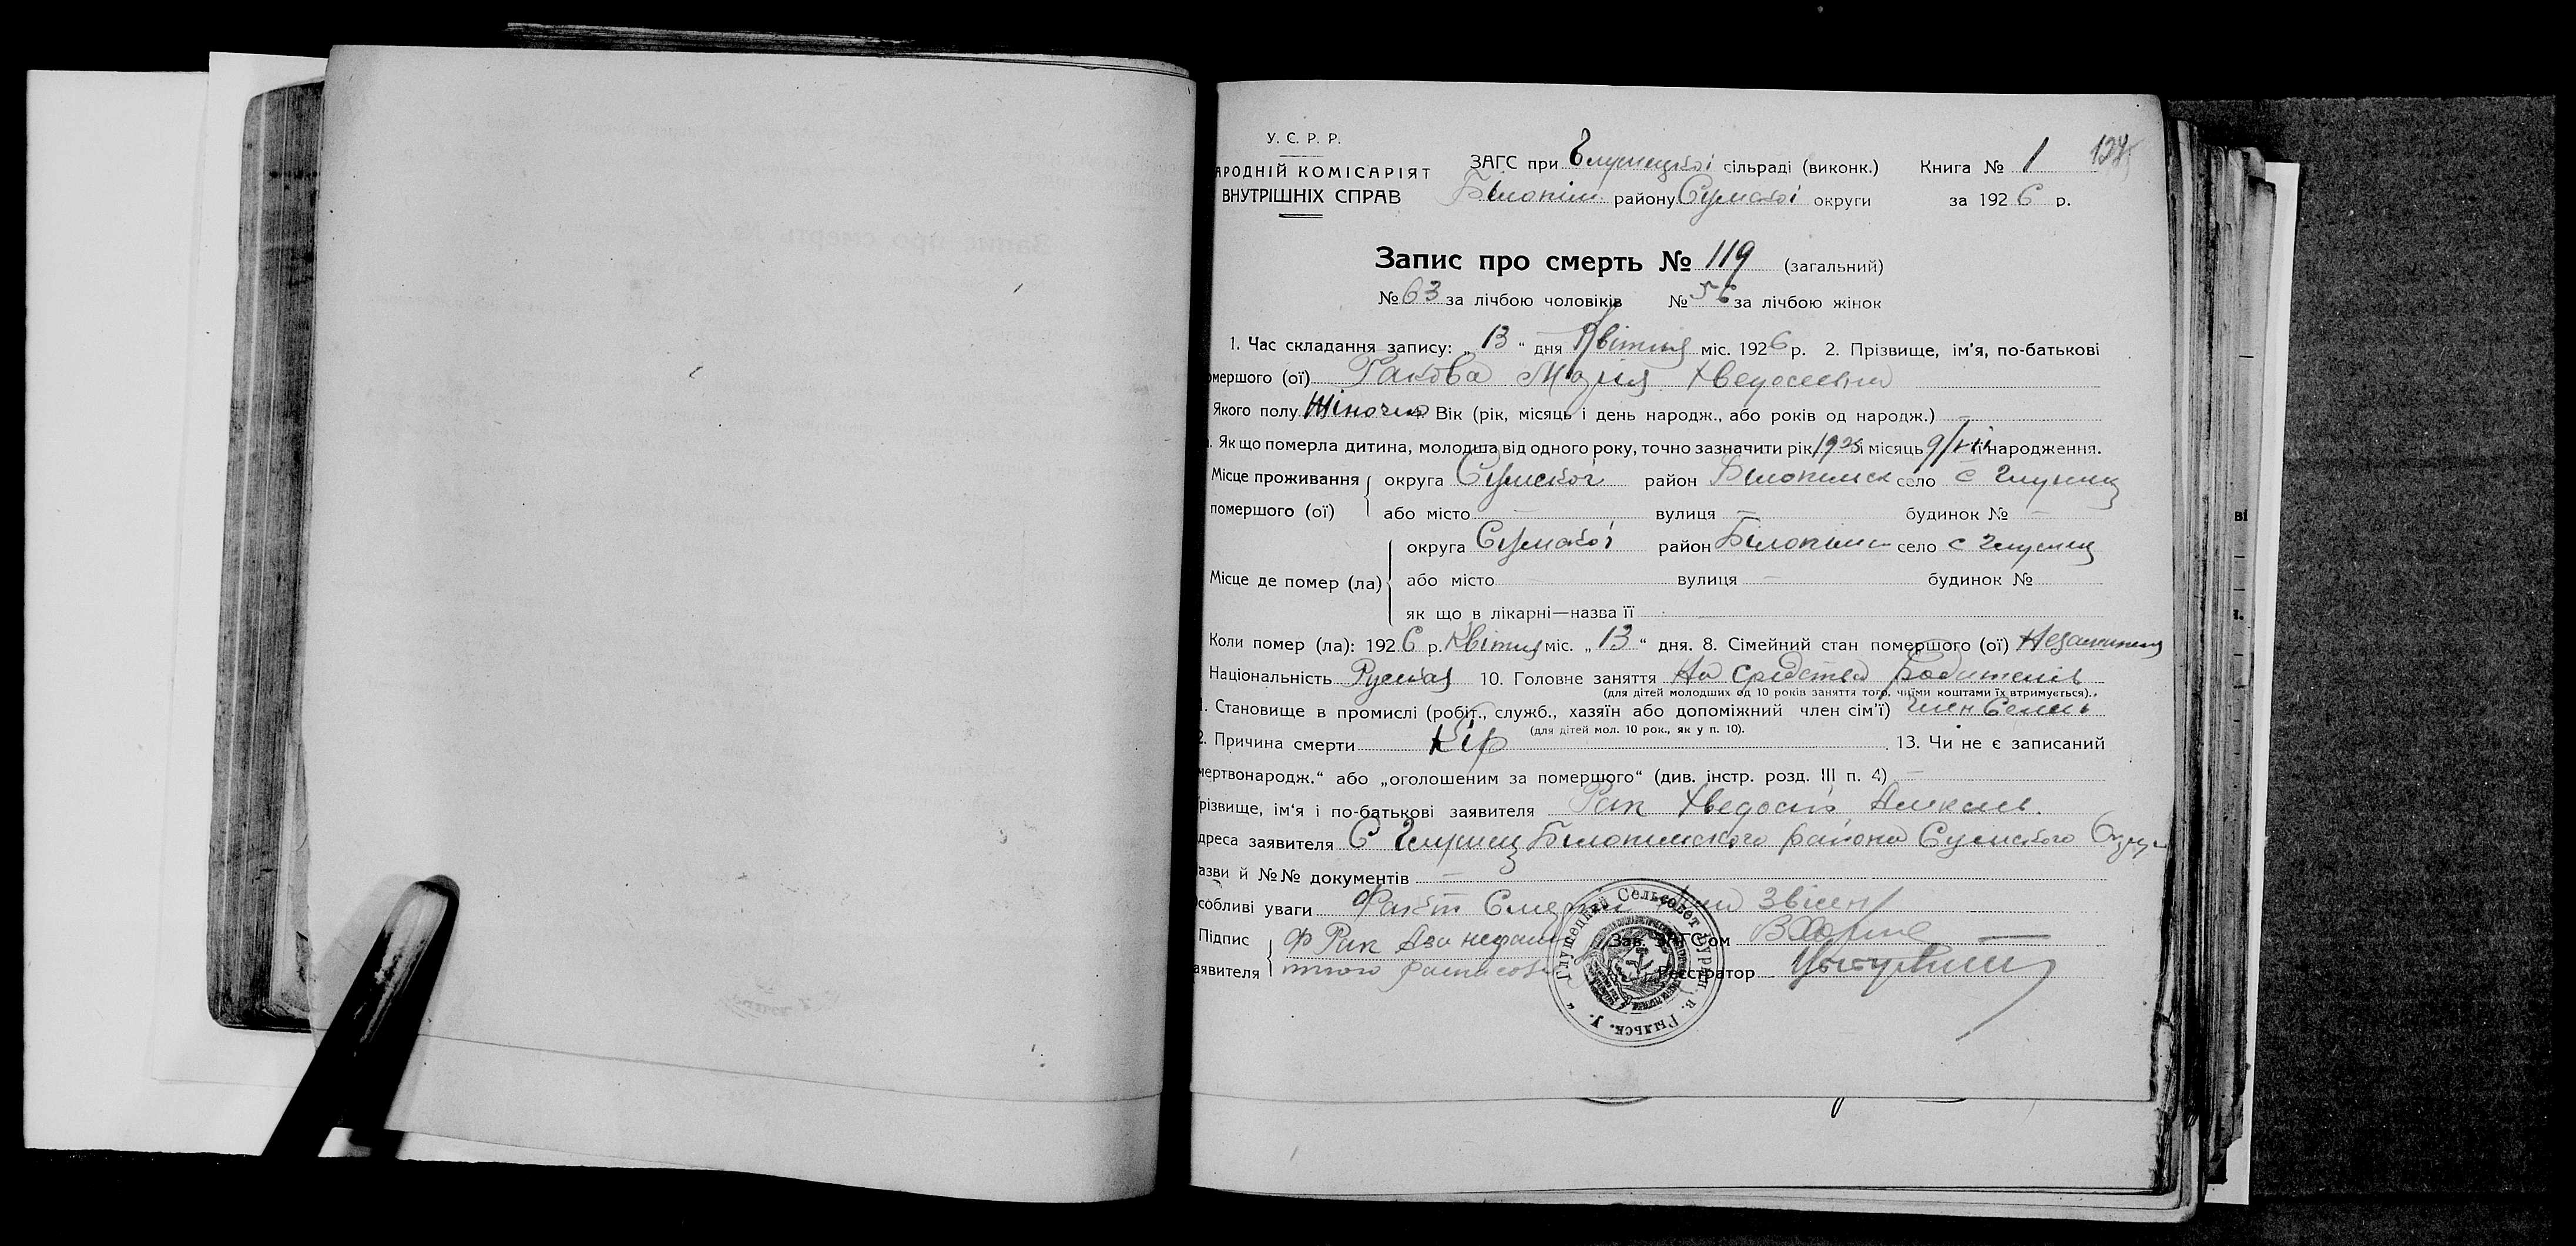 У. С. Р. Р.
АРОДНІЙ КОМІСАРІЯТ
ВНУТРІШНІХ СПРАВ
ЗАГС при Глушецької сільраді (виконк.) Книга № 1
Білопіл. району Сумської округи за 1926 р.
Запис про смерть № 119 (загальний)
№ 63 за лічбою чоловіків № 56 за лічбою жінок
1. Час складання запису: „ 13 “ дня Квітня міс. 1926 р. 2. Прізвище, ім'я, по-батькові
омершого (ої) Ракова Марія Хведосеевна
Якого полу Жіночого Вік (рік, місяць і день народж., або років од народж.) —
. Як що померла дитина, молодша від одного року, точно зазначити рік 1925 і місяць народження.
Місце проживання округа Сумської район Білопільск село с Глушец
помершого (ої) або місто — вулиця — будинок № —
округа Сумської район Білопільс село с Глушец
Місце де помер (ла) або місто вулиця — будинок №
як що в лікарні—назва її
Коли помер (ла): 1926 р. Квітня міс. „ 13 “ дня. 8. Сімейний стан помершого (ої)
Національність Руская 10. Головне заняття На средства Родителів
(для дітей молодших од 10 років заняття того, чиїми коштами їх втримується).
1. Становище в промислі (робіт., служб., хазяїн або допоміжний член сім'ї) член Семьи
(для дітей мол. 10 рок., як у п. 10).
2. Причина смерти Кір 13. Чи не є записаний
мертвонародж.“ або „оголошеним за помершого“ (див. інстр. розд. III п. 4) —
різвище, ім'я і по-батькові заявителя Рак Хведосій
дреса заявителя С Глушец Білопільского района Сумского Округ
азви й №№ документів —
собливі уваги Факт Смерти
Підпис Ф Рак
аявителя
Зав. ЗАГС'ом
Реєстратор
Глушецкий Сельсовет Бурын. в. Рыльск. у.